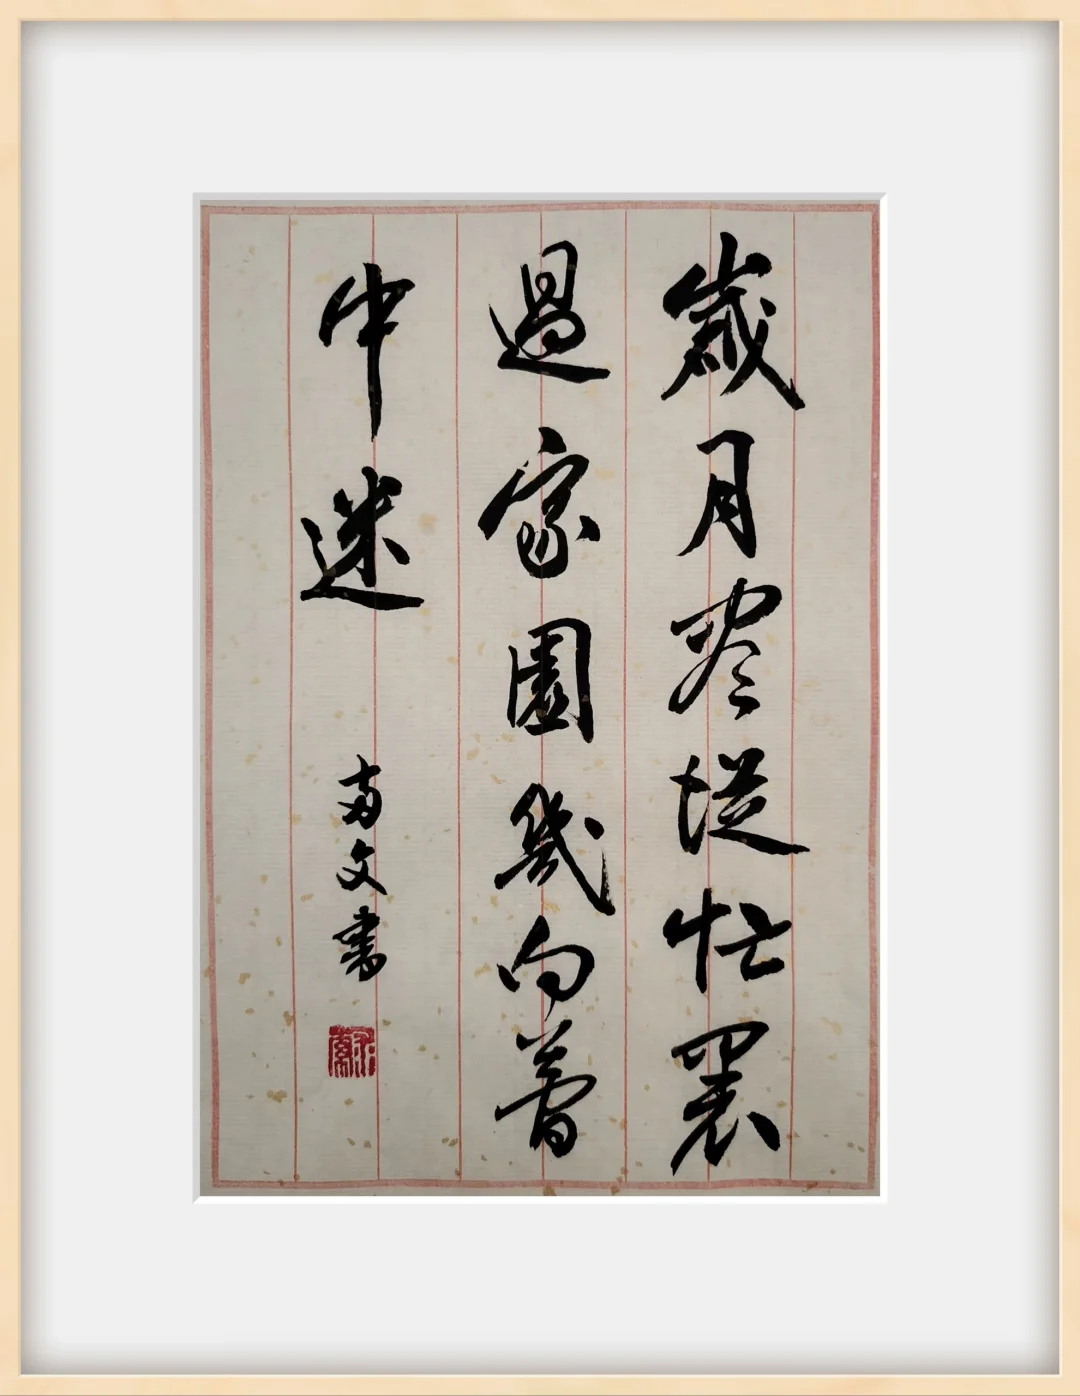 歲月尽從忙裏
過家園幾向夢
中迷
文書